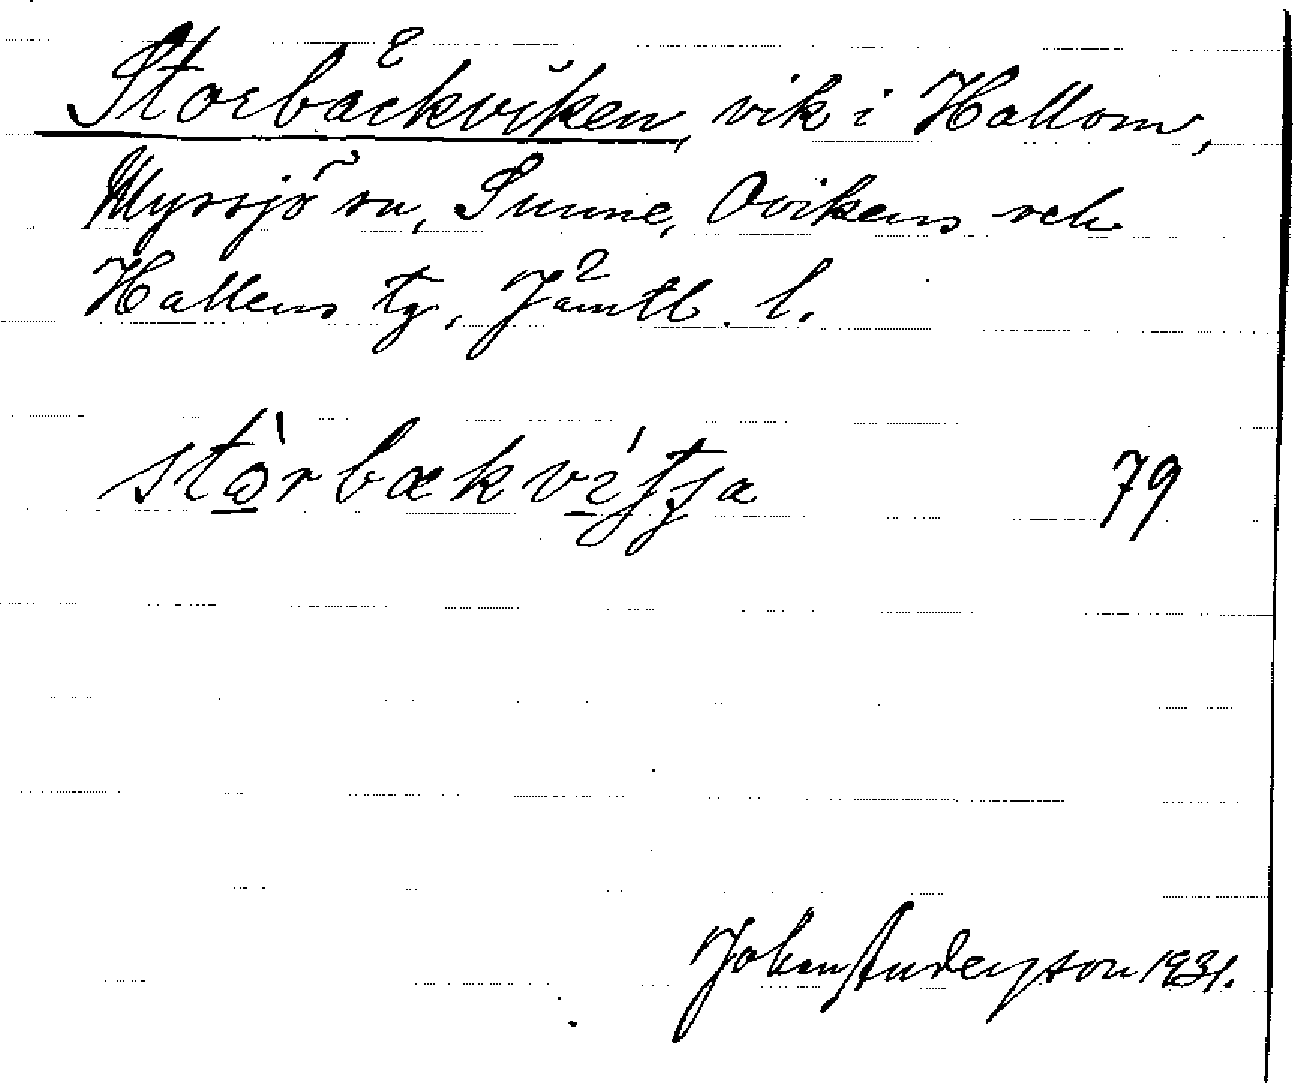 Storbäckviken, vik i Hallom,
Myssjö sn, Sunne, Ovikens och
Hallens tg, Jämtl. l.
79
Johan Anderzson 1931.